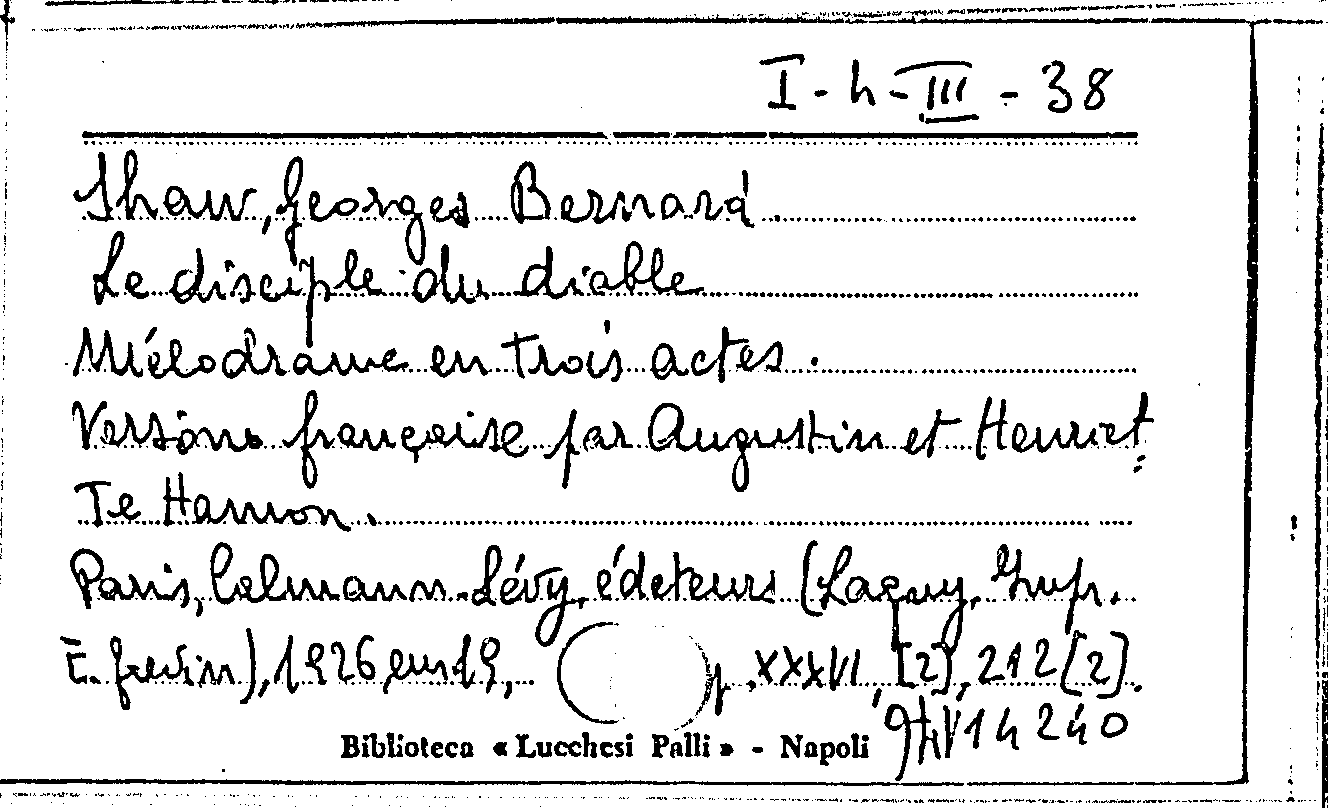 I - h - III - 38
Shaw, Georges Bernard.
Le disciple du diable
Mélodrame en trois actes.
Versione française par Augustin et Henriet=
Te Hamon.
Paris, Calmann-Lévy, éditeurs (Lagny, Imp.
E. Grevin), 1926, cm 19, p. XXXVI, [2], 212 [2].
14240
Biblioteca « Lucchesi Palli » - Napoli